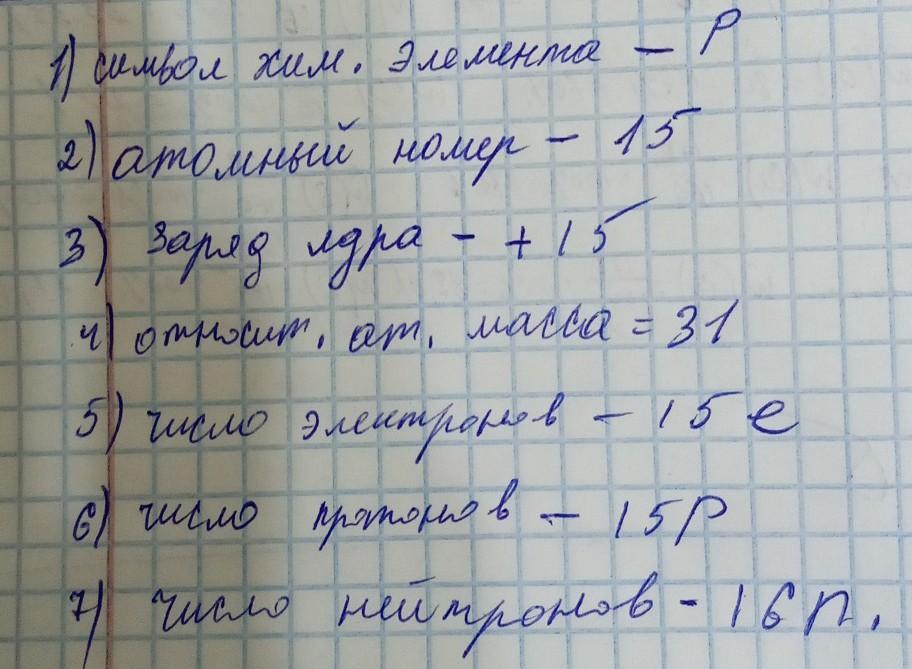 1) символ хим. элемента – P
2) атомный номер – 15
3) Заряд ядра – +15
4) относит. ат. масса = 31
5) число электронов – 15 e
6) число протонов – 15p
7) число нейтронов - 16n.